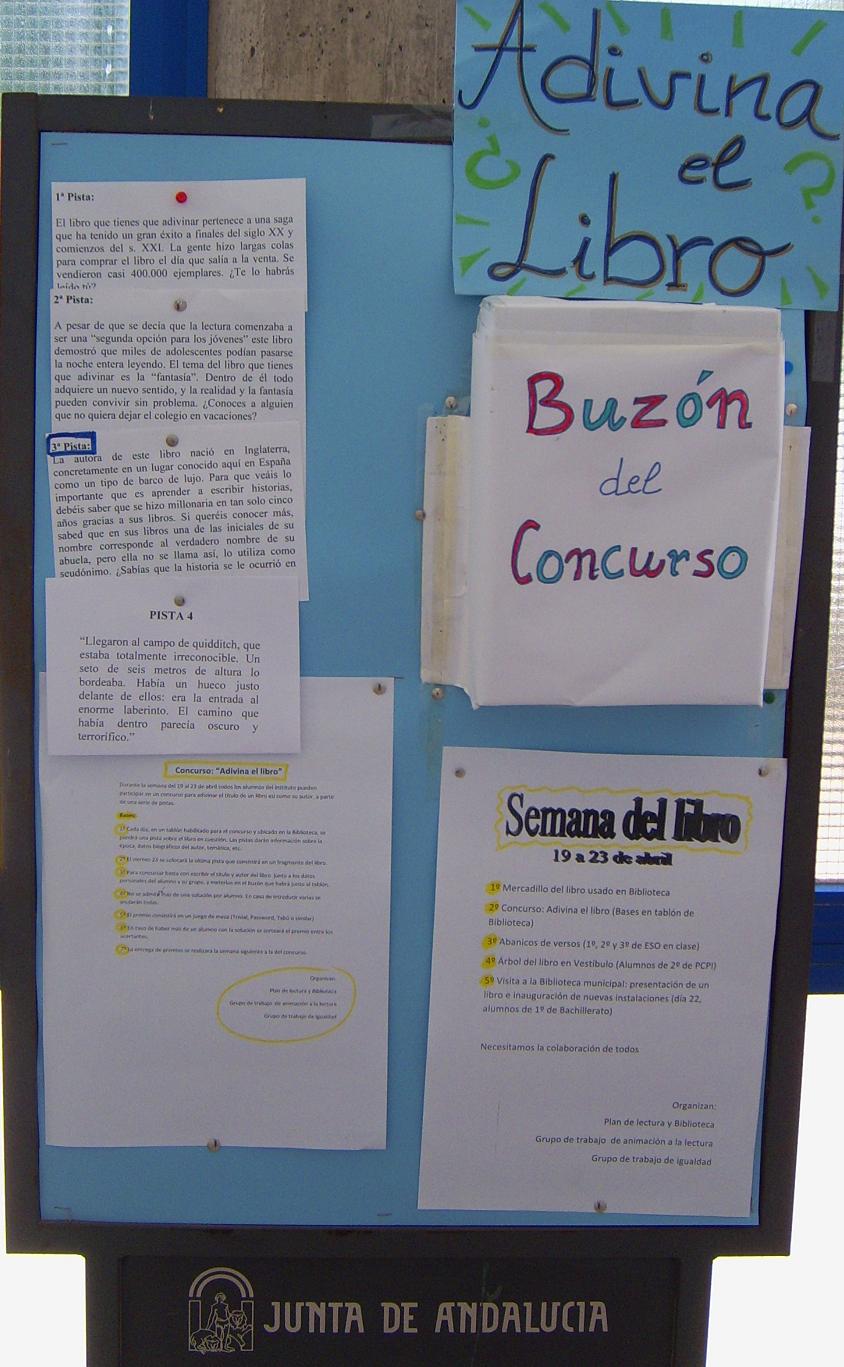 Adivina
el
¿Libro?
1ª Pista:
El libro que tienes que adivinar pertenece a una saga
que ha tenido un gran éxito a finales del siglo XX y
comienzos del s. XXI. La gente hizo largas colas
para comprar el libro el día que salía a la venta. Se
vendieron casi 400.000 ejemplares. ¿Te lo habrás
leído tú?
2ª Pista:
A pesar de que se decía que la lectura comenzaba a
ser una "segunda opción para los jóvenes" este libro
demostró que miles de adolescentes podían pasarse
la noche entera leyendo. El tema del libro que tienes
que adivinar es la "fantasía". Dentro de él todo
adquiere un nuevo sentido, y la realidad y la fantasía
pueden convivir sin problema. ¿Conoces a alguien
que no quiera dejar el colegio en vacaciones?
3ª Pista:
La autora de este libro nació en Inglaterra,
concretamente en un lugar conocido aquí en España
como un tipo de barco de lujo. Para que veáis lo
importante que es aprender a escribir historias,
debéis saber que se hizo millonaria en tan solo cinco
años gracias a sus libros. Si queréis conocer más,
sabed que en sus libros una de las iniciales de su
nombre corresponde al verdadero nombre de su
abuela, pero ella no se llama así, lo utiliza como
seudónimo. ¿Sabías que la historia se le ocurrió en
PISTA 4
"Llegaron al campo de quidditch, que
estaba totalmente irreconocible. Un
seto de seis metros de altura lo
bordeaba. Había un hueco justo
delante de ellos: era la entrada al
enorme laberinto. El camino que
había dentro parecía oscuro y
terrorífico."
Concurso: "Adivina el libro"
Durante la semana del 19 al 23 de abril todos los alumnos del instituto pueden
participar en un concurso para adivinar el título de un libro así como su autor, a partir
de una serie de pistas.
Bases:
1ª Cada día, en un tablón habilitado para el concurso y ubicado en la Biblioteca, se
pondrá una pista sobre el libro en cuestión. Las pistas darán información sobre la
época, datos biográficos del autor, temática, etc.
2ª El viernes 23 se colocará la última pista que consistirá en un fragmento del libro.
3ª Para concursar basta con escribir el título y autor del libro junto a los datos
personales del alumno y su grupo, y meterlos en el buzón que habrá junto al tablón.
4ª No se admite más de una solución por alumno. En caso de introducir varias se
anularán todas.
5ª El premio consistirá en un juego de mesa (Trivial, Password, Tabú o similar)
6ª En caso de haber más de un alumno con la solución se sorteará el premio entre los
acertantes.
7ª La entrega de premios se realizará la semana siguiente a la del concurso.
Organizan:
Plan de lectura y Biblioteca
Grupo de trabajo de animación a la lectura
Grupo de trabajo de igualdad
Buzón
del
Concurso
Semana del libro
19 a 23 de abril
1º Mercadillo del libro usado en Biblioteca
2º Concurso: Adivina el libro (Bases en tablón de
Biblioteca)
3º Abanicos de versos (1º, 2º y 3º de ESO en clase)
4º Árbol del libro en Vestíbulo (Alumnos de 2º de PCPI)
5º Visita a la Biblioteca municipal: presentación de un
libro e inauguración de nuevas instalaciones (día 22,
alumnos de 1º de Bachillerato)
Necesitamos la colaboración de todos
Organizan:
Plan de lectura y Biblioteca
Grupo de trabajo de animación a la lectura
Grupo de trabajo de igualdad
JUNTA DE ANDALUCIA